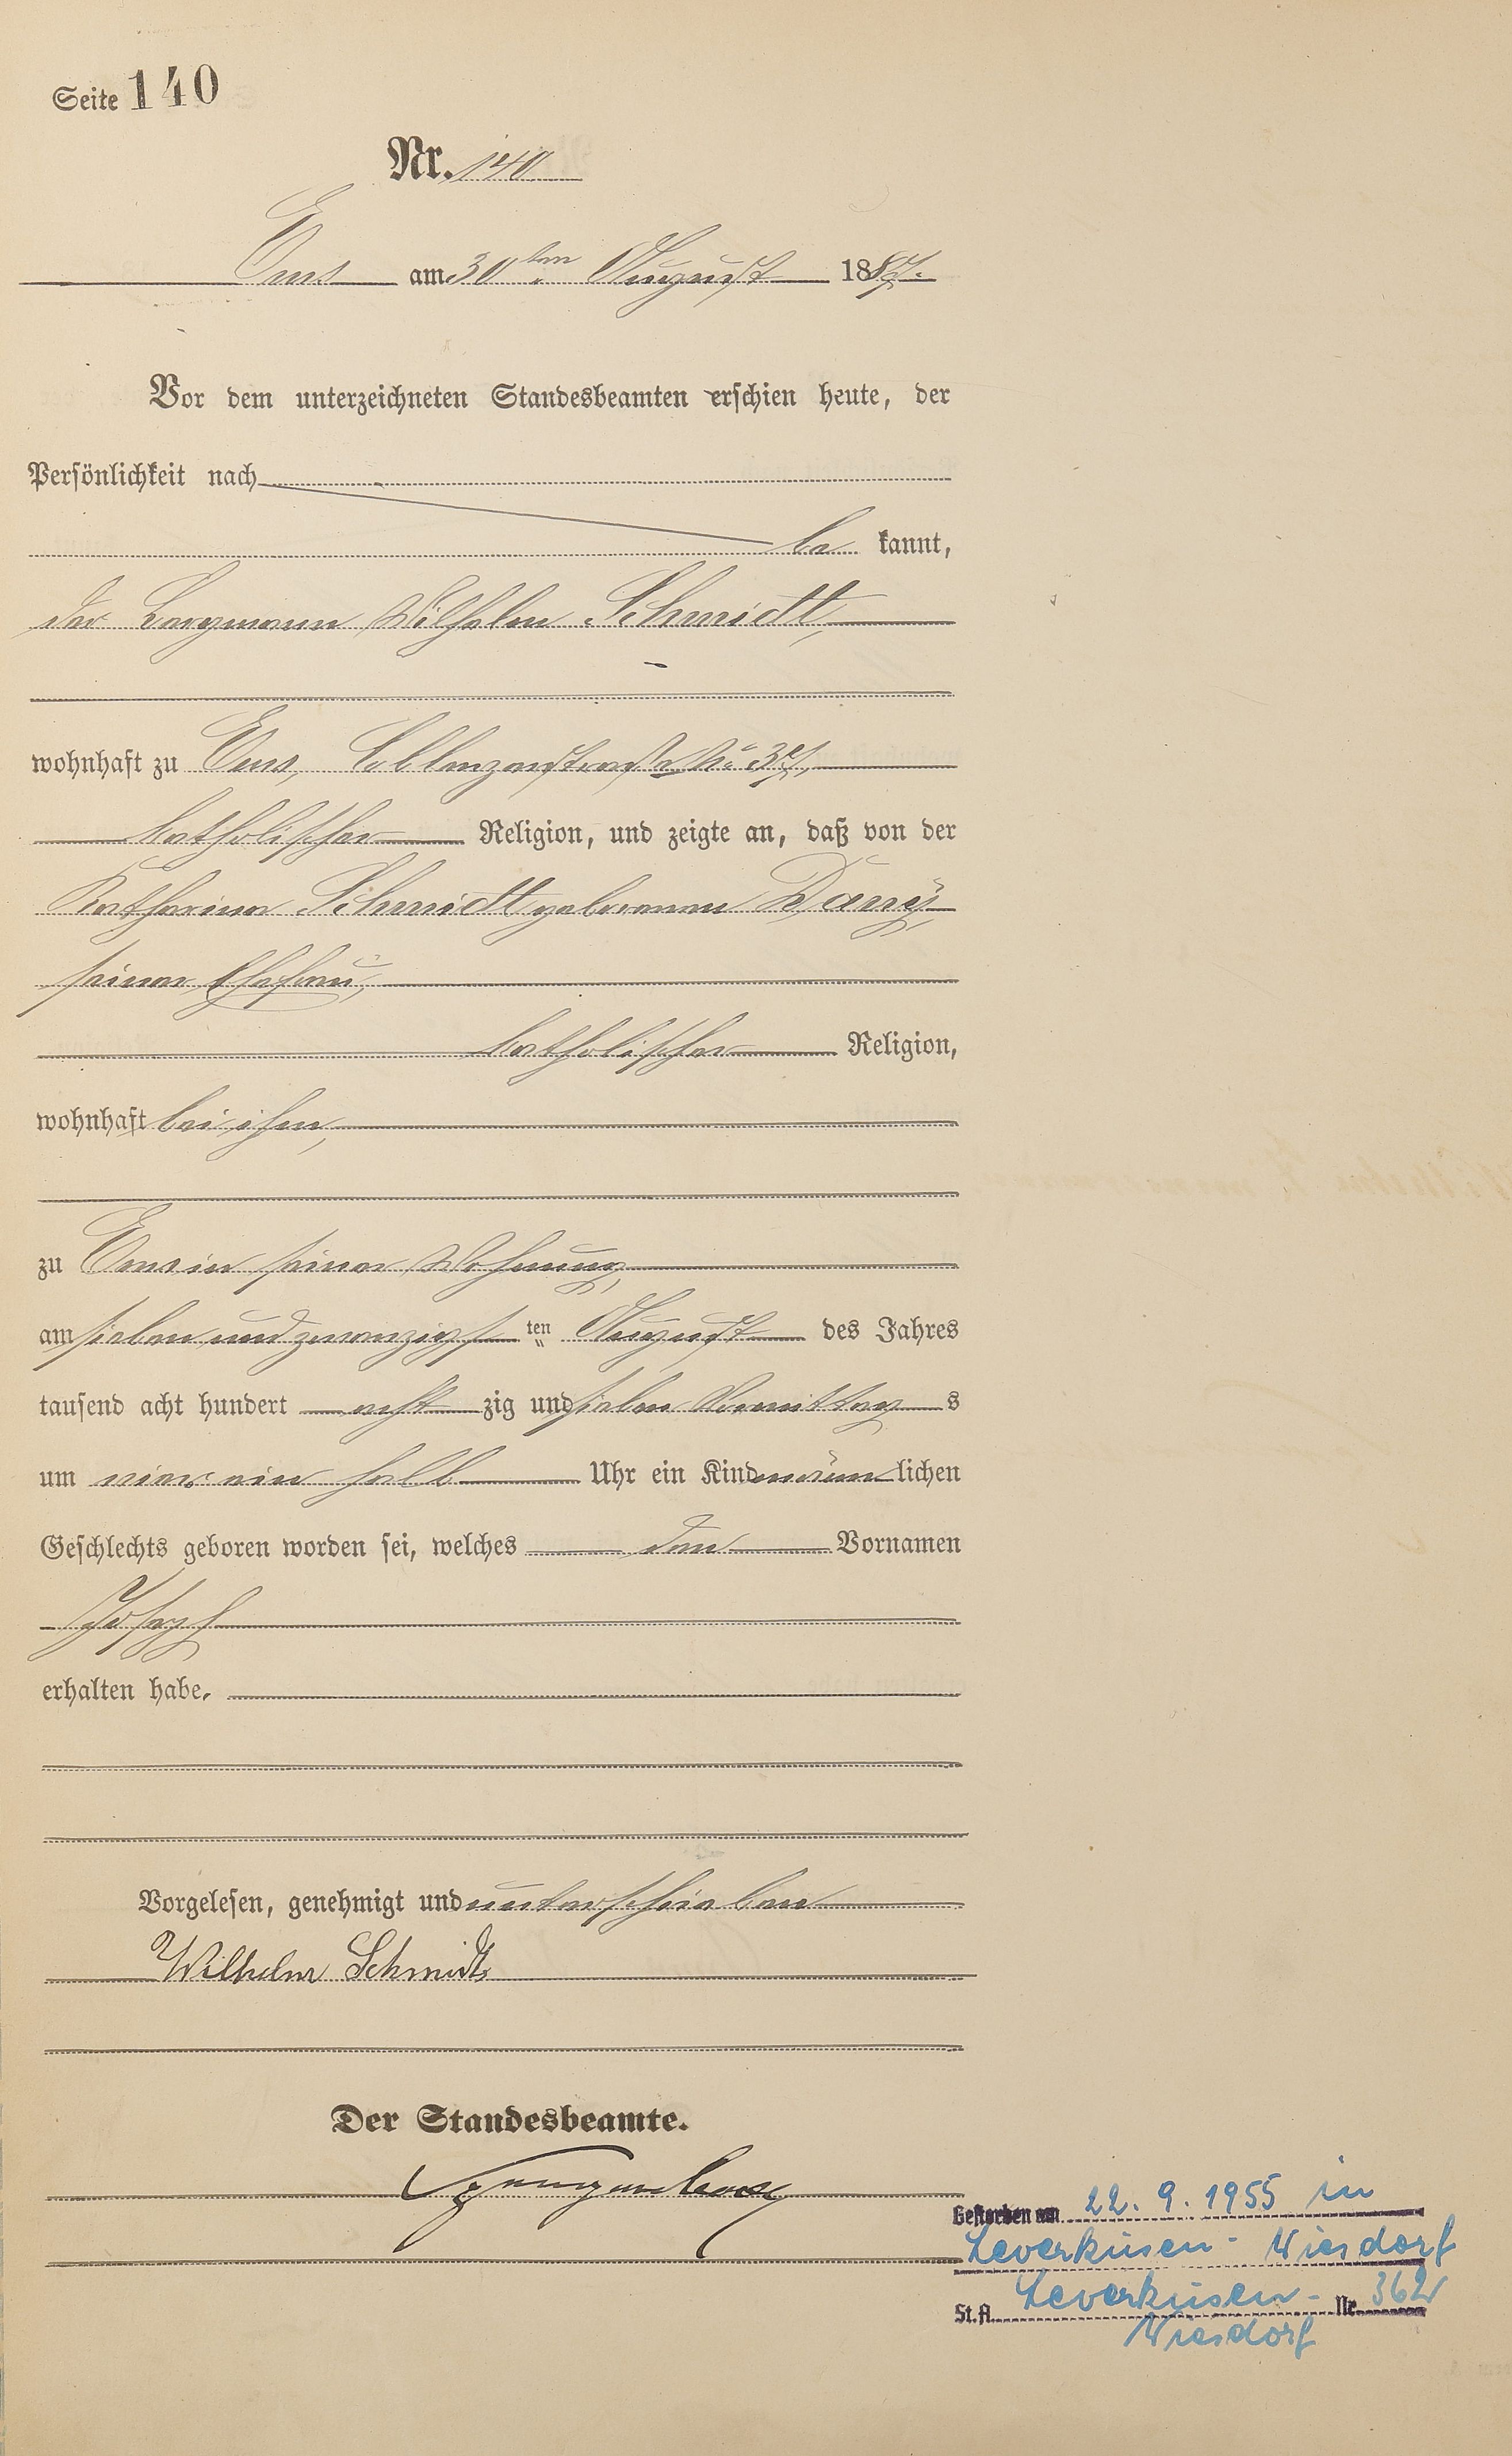 Seite 140
Nr. 140
Ems am 30ten August 1887.
Vor dem unterzeichneten Standesbeamten erschien heute, der
Persönlichkeit nach
be kannt,
der Bergmann Wilhelm Schmidt,
wohnhaft zu Ems, Coblenzerstraße No 37,
katholischer Religion, und zeigte an, daß von der
Katharina Schmidt geborenen Dany,
seiner Ehefrau,
katholischer Religion,
wohnhaft bei ihm,
zu Ems in seiner Wohnung,
am sieben und zwanzigsten August des Jahres
tausend acht hundert acht zig und sieben Vormittag s
um vier ein halb Uhr ein Kind männlichen
Geschlechts geboren worden sei, welches den Vornamen
Joseph
erhalten habe.
Vorgelesen, genehmigt und unterschrieben
Wilhelm Schmidt
Der Standesbeamte.
Gestorben am 22. 9. 1955 in
Leverkusen - Wiesdorf
St.A. Leverkusen - Nr. 362
Wiesdorf